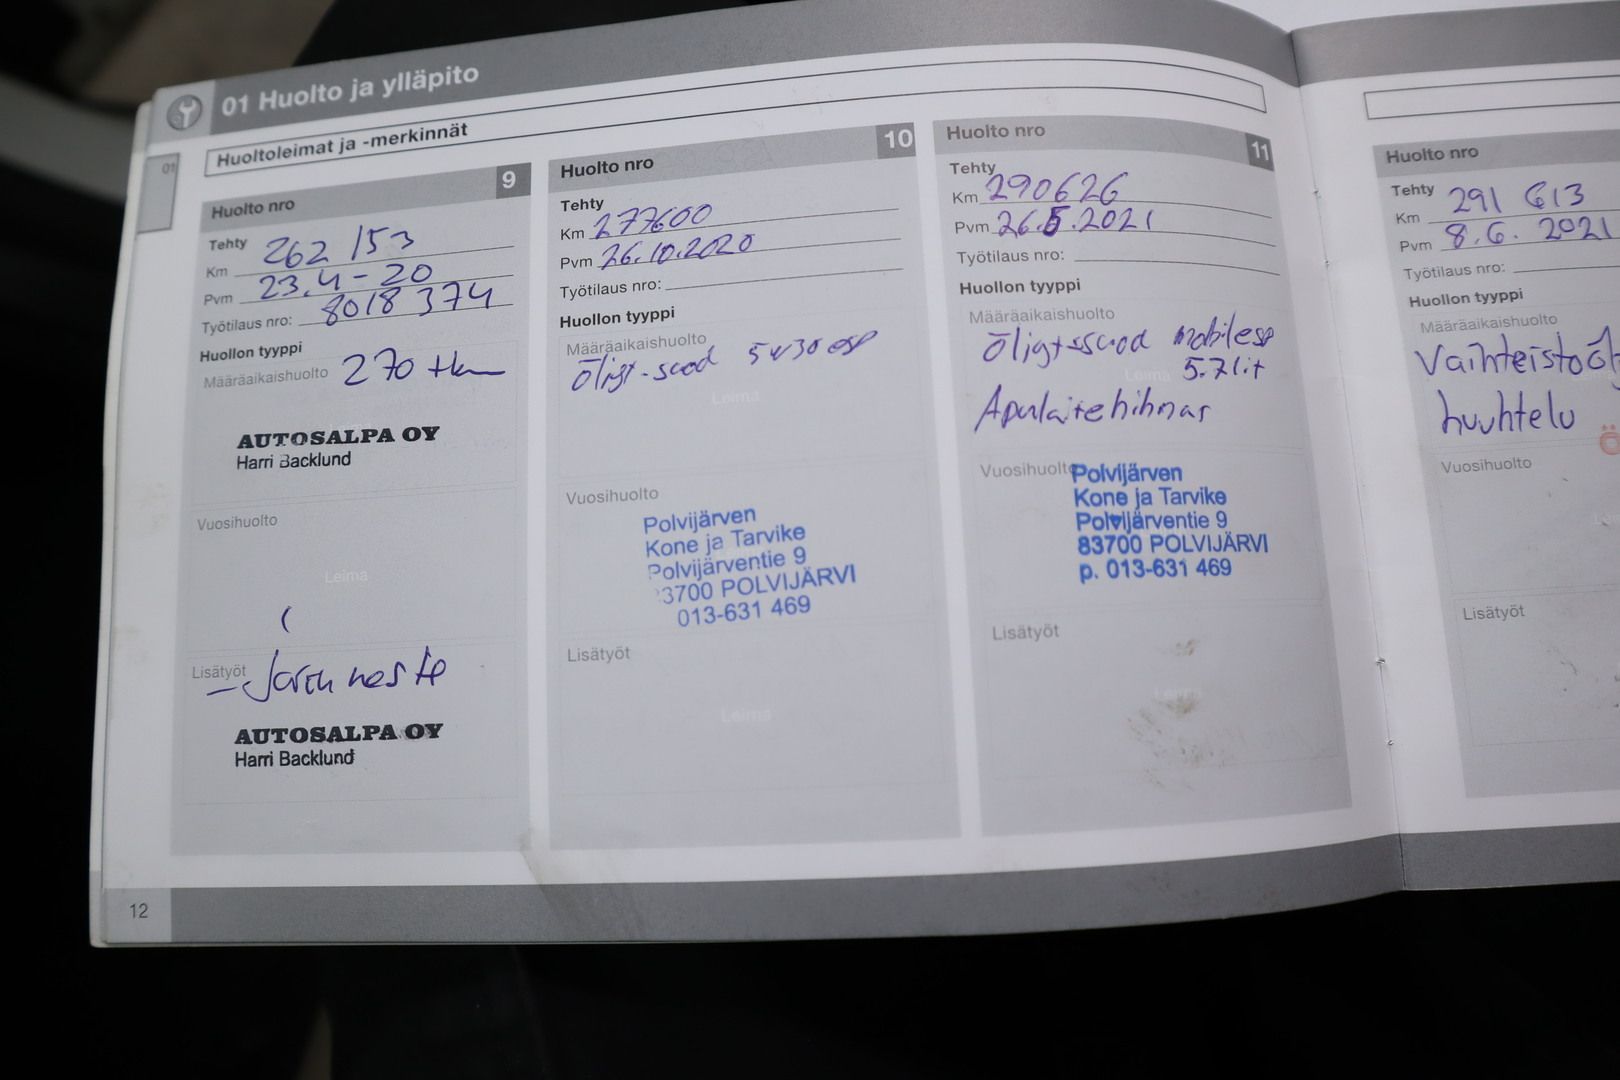 01 Huolto ja ylläpito
01
Huoltoleimat ja -merkinnät
9
Huolto nro
Tehty
Km 262 153
Pvm 23.4-20
Työtilaus nro: 8018 374
Huollon tyyppi
Määräaikaishuolto 270 tkm
AUTOSALPA OY
Harri Backlund
Vuosihuolto
Leima
Lisätyöt
- Jarru neste
AUTOSALPA OY
Harri Backlund
10
Huolto nro
Tehty
Km 277600
Pvm 26.10.2020
Työtilaus nro:
Huollon tyyppi
Määräaikaishuolto
öljyt-suod 5w30 esp
Leima
Vuosihuolto
Polvijärven
Kone ja Tarvike
Polvijärventie 9
3700 POLVIJÄRVI
013-631 469
Lisätyöt
Leima
11
Huolto nro
Tehty
Km 290626
Pvm 26.5.2021
Työtilaus nro:
Huollon tyyppi
Määräaikaishuolto
öljyt-suod mobilesp
5.7lit
Leima
Apulaitehihnas
Vuosihuolto
Polvijärven
Kone ja Tarvike
Polvijärventie 9
83700 POLVIJÄRVI
p. 013-631 469
Lisätyöt
Leima
Huolto nro
Tehty
Km 291 613
Pvm 8.6. 2021
Työtilaus nro:
Huollon tyyppi
Määräaikaishuolto
Vaihteistoölj
huuhtelu
Vuosihuolto
Lisätyöt
12